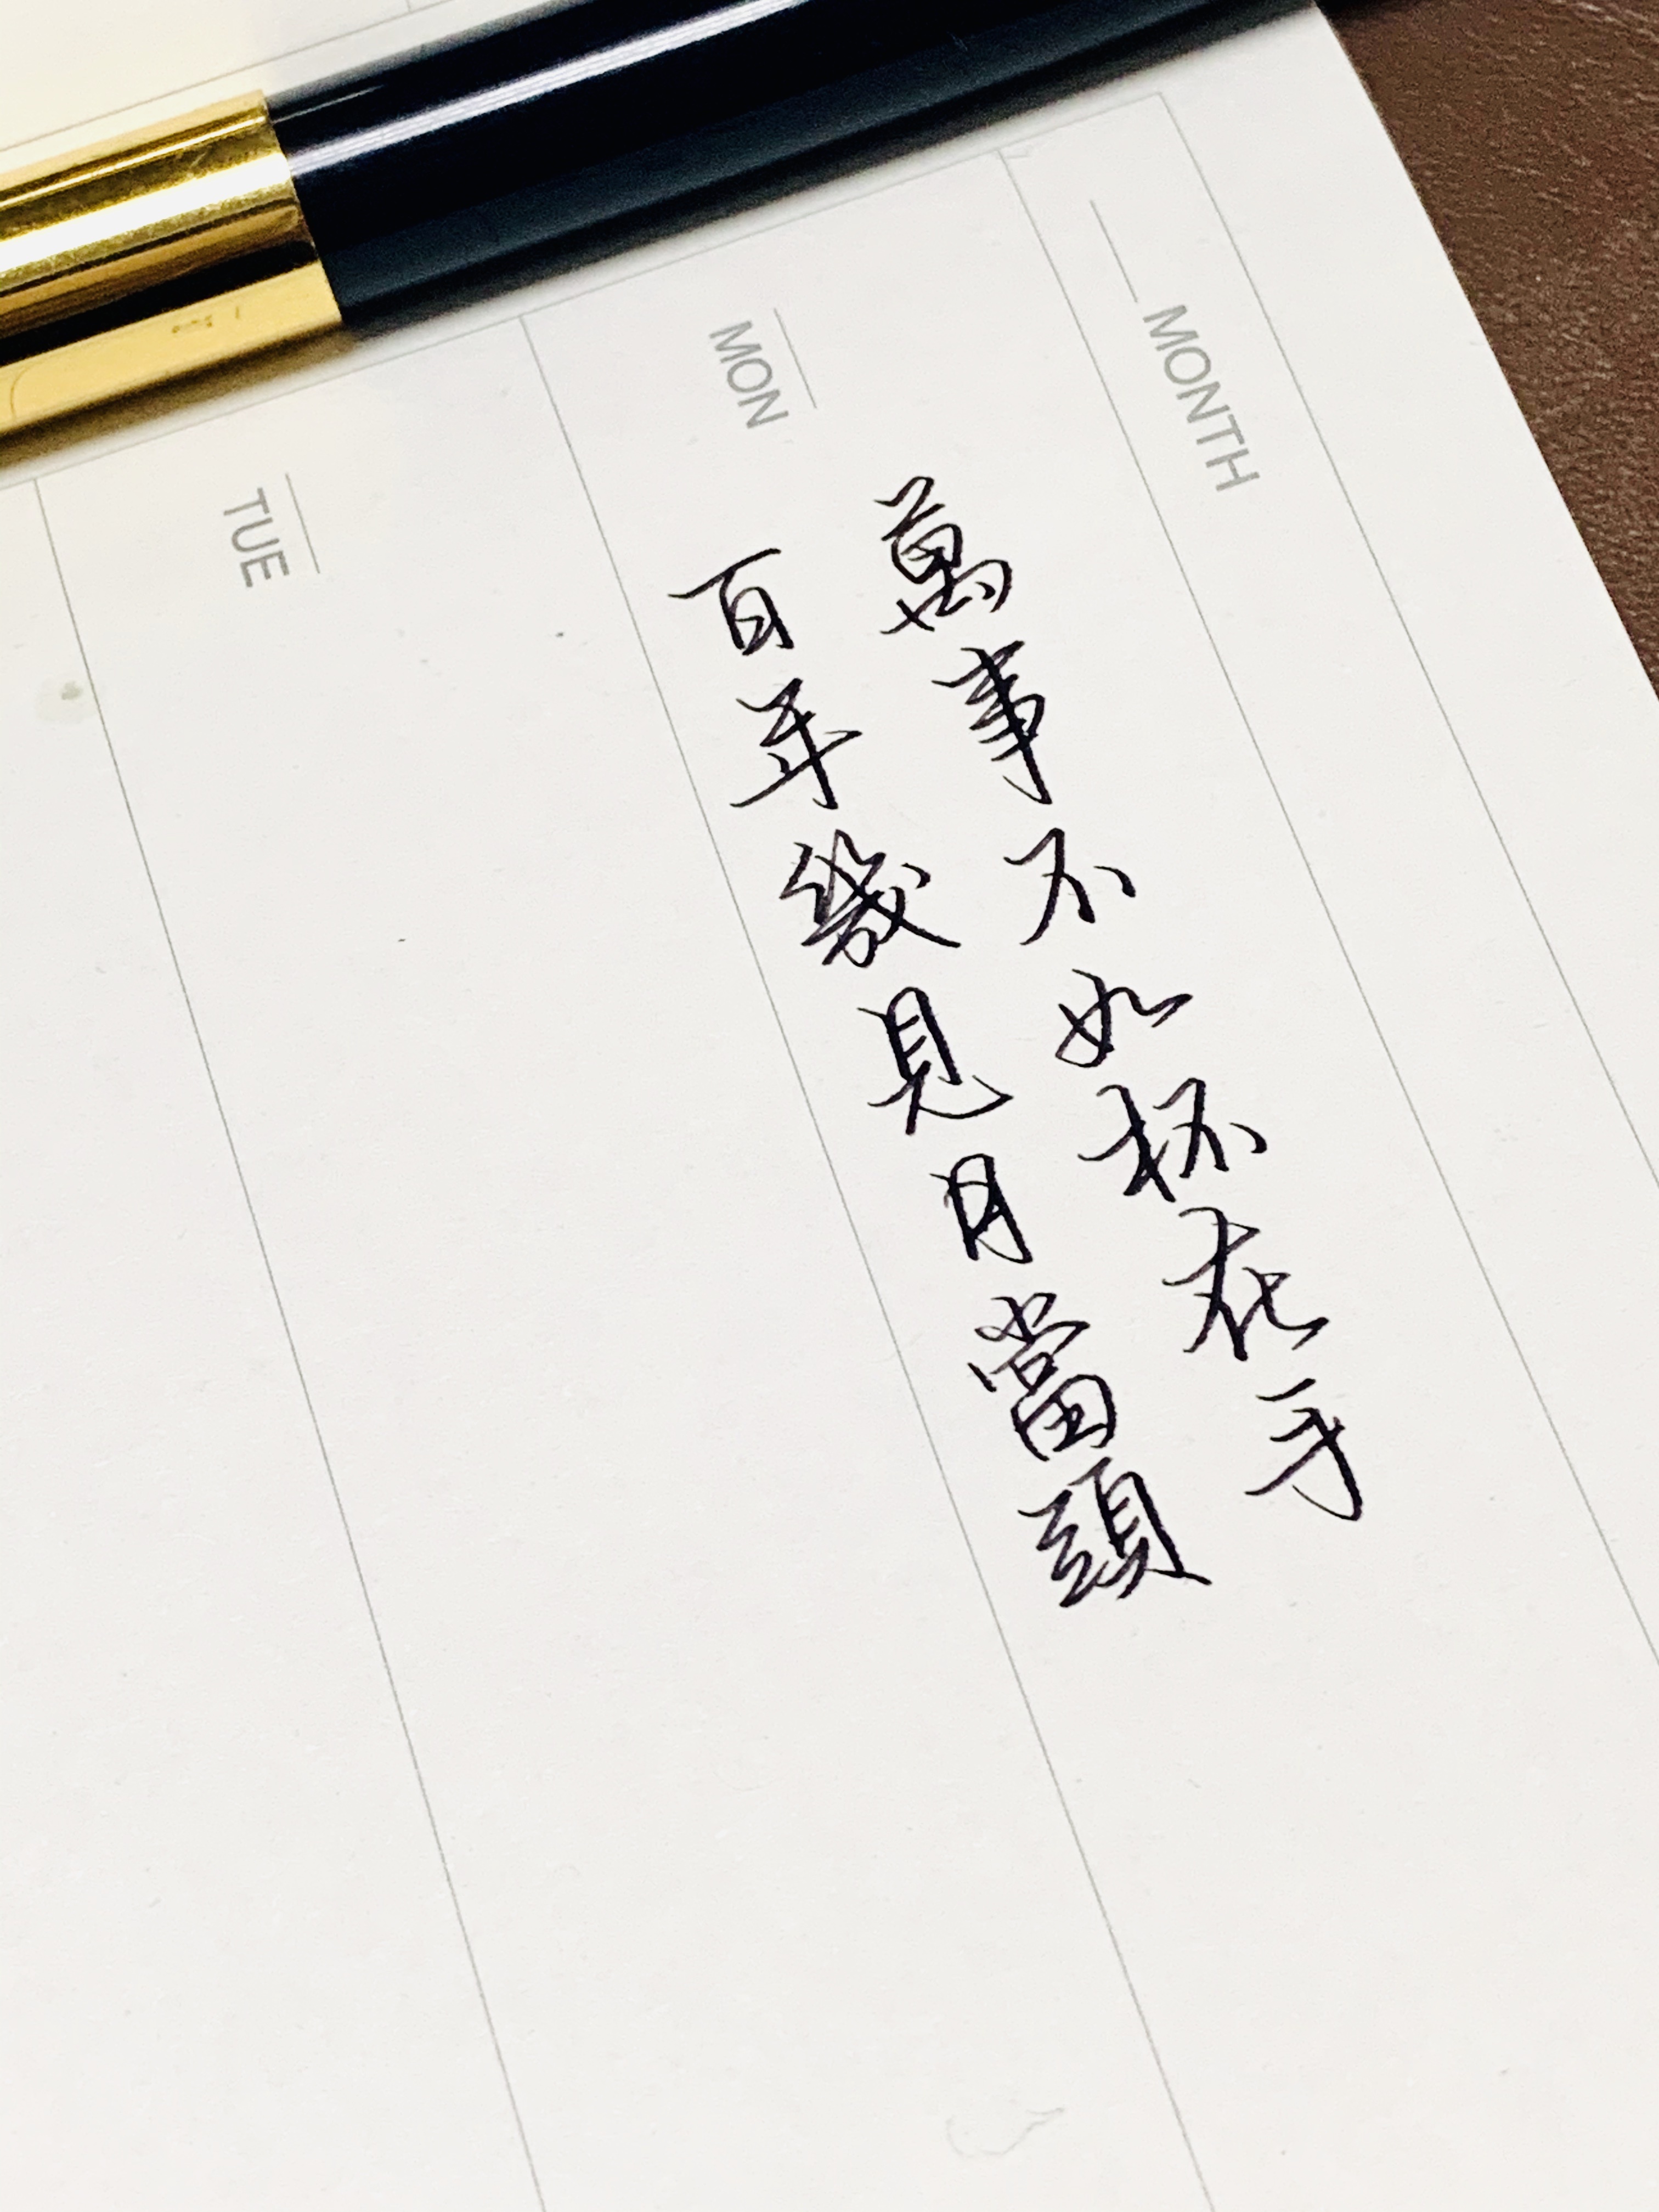 MONTH
MON
TUE
萬事不如杯在手
百年幾見月當頭